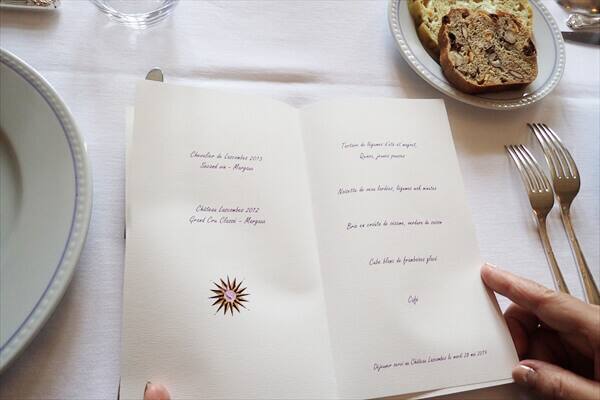 Chevalier de Lascombes 2013
Second vin - Margaux
Château Lascombes 2012
Grand Cru Classé - Margaux
Tartare de légumes d'été et magret,
Quinoa, jeunes pousses
Noisette de veau lardées, légumes wok minutes
Brie en croûte de sésame, verdure de saison
Cube blanc de framboises glacé
Café
Déjeuner servi au Château Lascombes le mardi 20 mai 2014